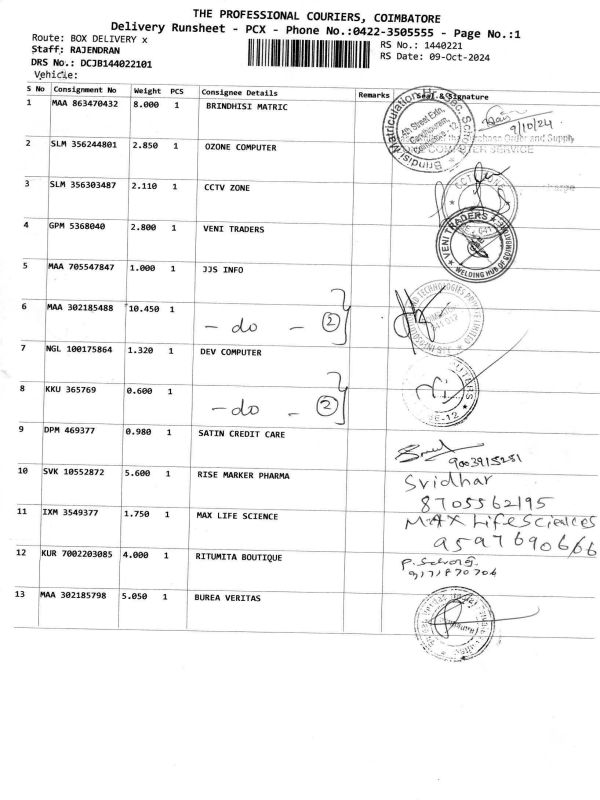 THE PROFESSIONAL COURIERS, COIMBATORE
Delivery Runsheet - PCX - Phone No.:0422-3505555 - Page No.:1
Route: BOX DELIVERY x RS No.: 1440221
Staff: RAJENDRAN RS Date: 09-Oct-2024
DRS No.: DCJB144022101
Vehicle:
S No Consignment No Weight PCS Consignee Details Remarks Seal & Signature
1 MAA 863470432 8.000 1 BRINDHISI MATRIC 9/10/24
2 SLM 356244801 2.850 1 OZONE COMPUTER COMPUTER SERVICE
3 SLM 356303487 2.110 1 CCTV ZONE
4 GPM 5368040 2.800 1 VENI TRADERS VENI TRADERS
5 MAA 705547847 1.000 1 JJS INFO
6 MAA 302185488 10.450 1 - do - 2
7 NGL 100175864 1.320 1 DEV COMPUTER
8 KKU 365769 0.600 1 - do - 2
9 DPM 469377 0.980 1 SATIN CREDIT CARE 9003915251
10 SVK 10552872 5.600 1 RISE MARKER PHARMA Sridhar
8705562195
11 IXM 3549377 1.750 1 MAX LIFE SCIENCE MAX Lifesciences
9597690666
12 KUR 7002203085 4.000 1 RITUMITA BOUTIQUE
9171870704
13 MAA 302185798 5.050 1 BUREA VERITAS